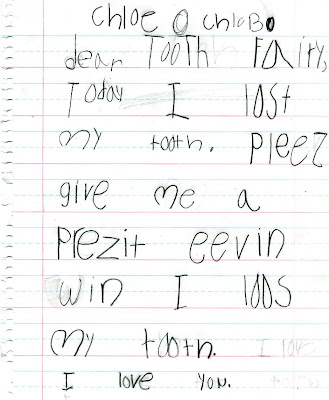 Chloe O chloBo
dear Tooth Fairy,
Today I lost
my tooth. pleez
give me a
prezit eevin
win I loos
my tooth. I love
I love you. tooth